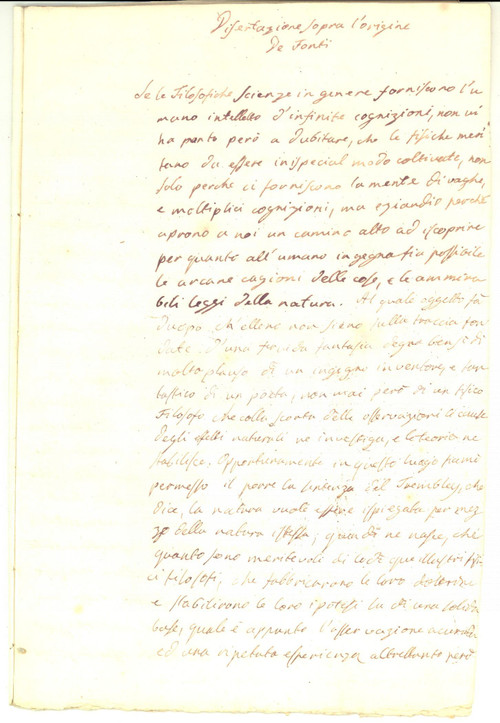 Disertazione sopra l'origine
De Fonti
Se le Filosofiche Scienze in genere forniscono l'u
mano intelletto d'infinite cognizioni, non vi
ha ponto però a dubitare, che le fisiche meri
tano da essere in ispecial modo coltivate, non
solo perche ci forniscono la mente di vaghe,
e moltiplici cognizioni, ma eziandio perchè
aprono a noi un camino alto ad iscoprire
per quanto all'umano ingegno fia possibile
le arcane cagioni delle cose, e le ammira
bili leggi della natura. Al quale oggetto fà
duopo, ch'elleno non sieno sulla traccia fon
date, d'una fantasia degna bensì di
molto plauso di un ingegno inventore, e fan
tastico di un poeta, non mai però di un fisico
Filosofo che colla scorta delle osservazioni le cause
degli effetti naturali ne investiga, e la teoria ne
stabilisce. Opportunamente in questo luogo siami
permesso il porre la sentenza del Trembley, che
dice, la natura vuole essere ispiegata per mez
zo della natura istessa; quindi ne nasce, che
quanto sono meritevoli di lode que illustri fisi
ci filosofi, che fabbricarono le loro dotrine
e stabilirono le loro ipotesi su di una soda
base, quale è appunto l'osservazione accurata
ed una ripetuta esperienza altrettanto però